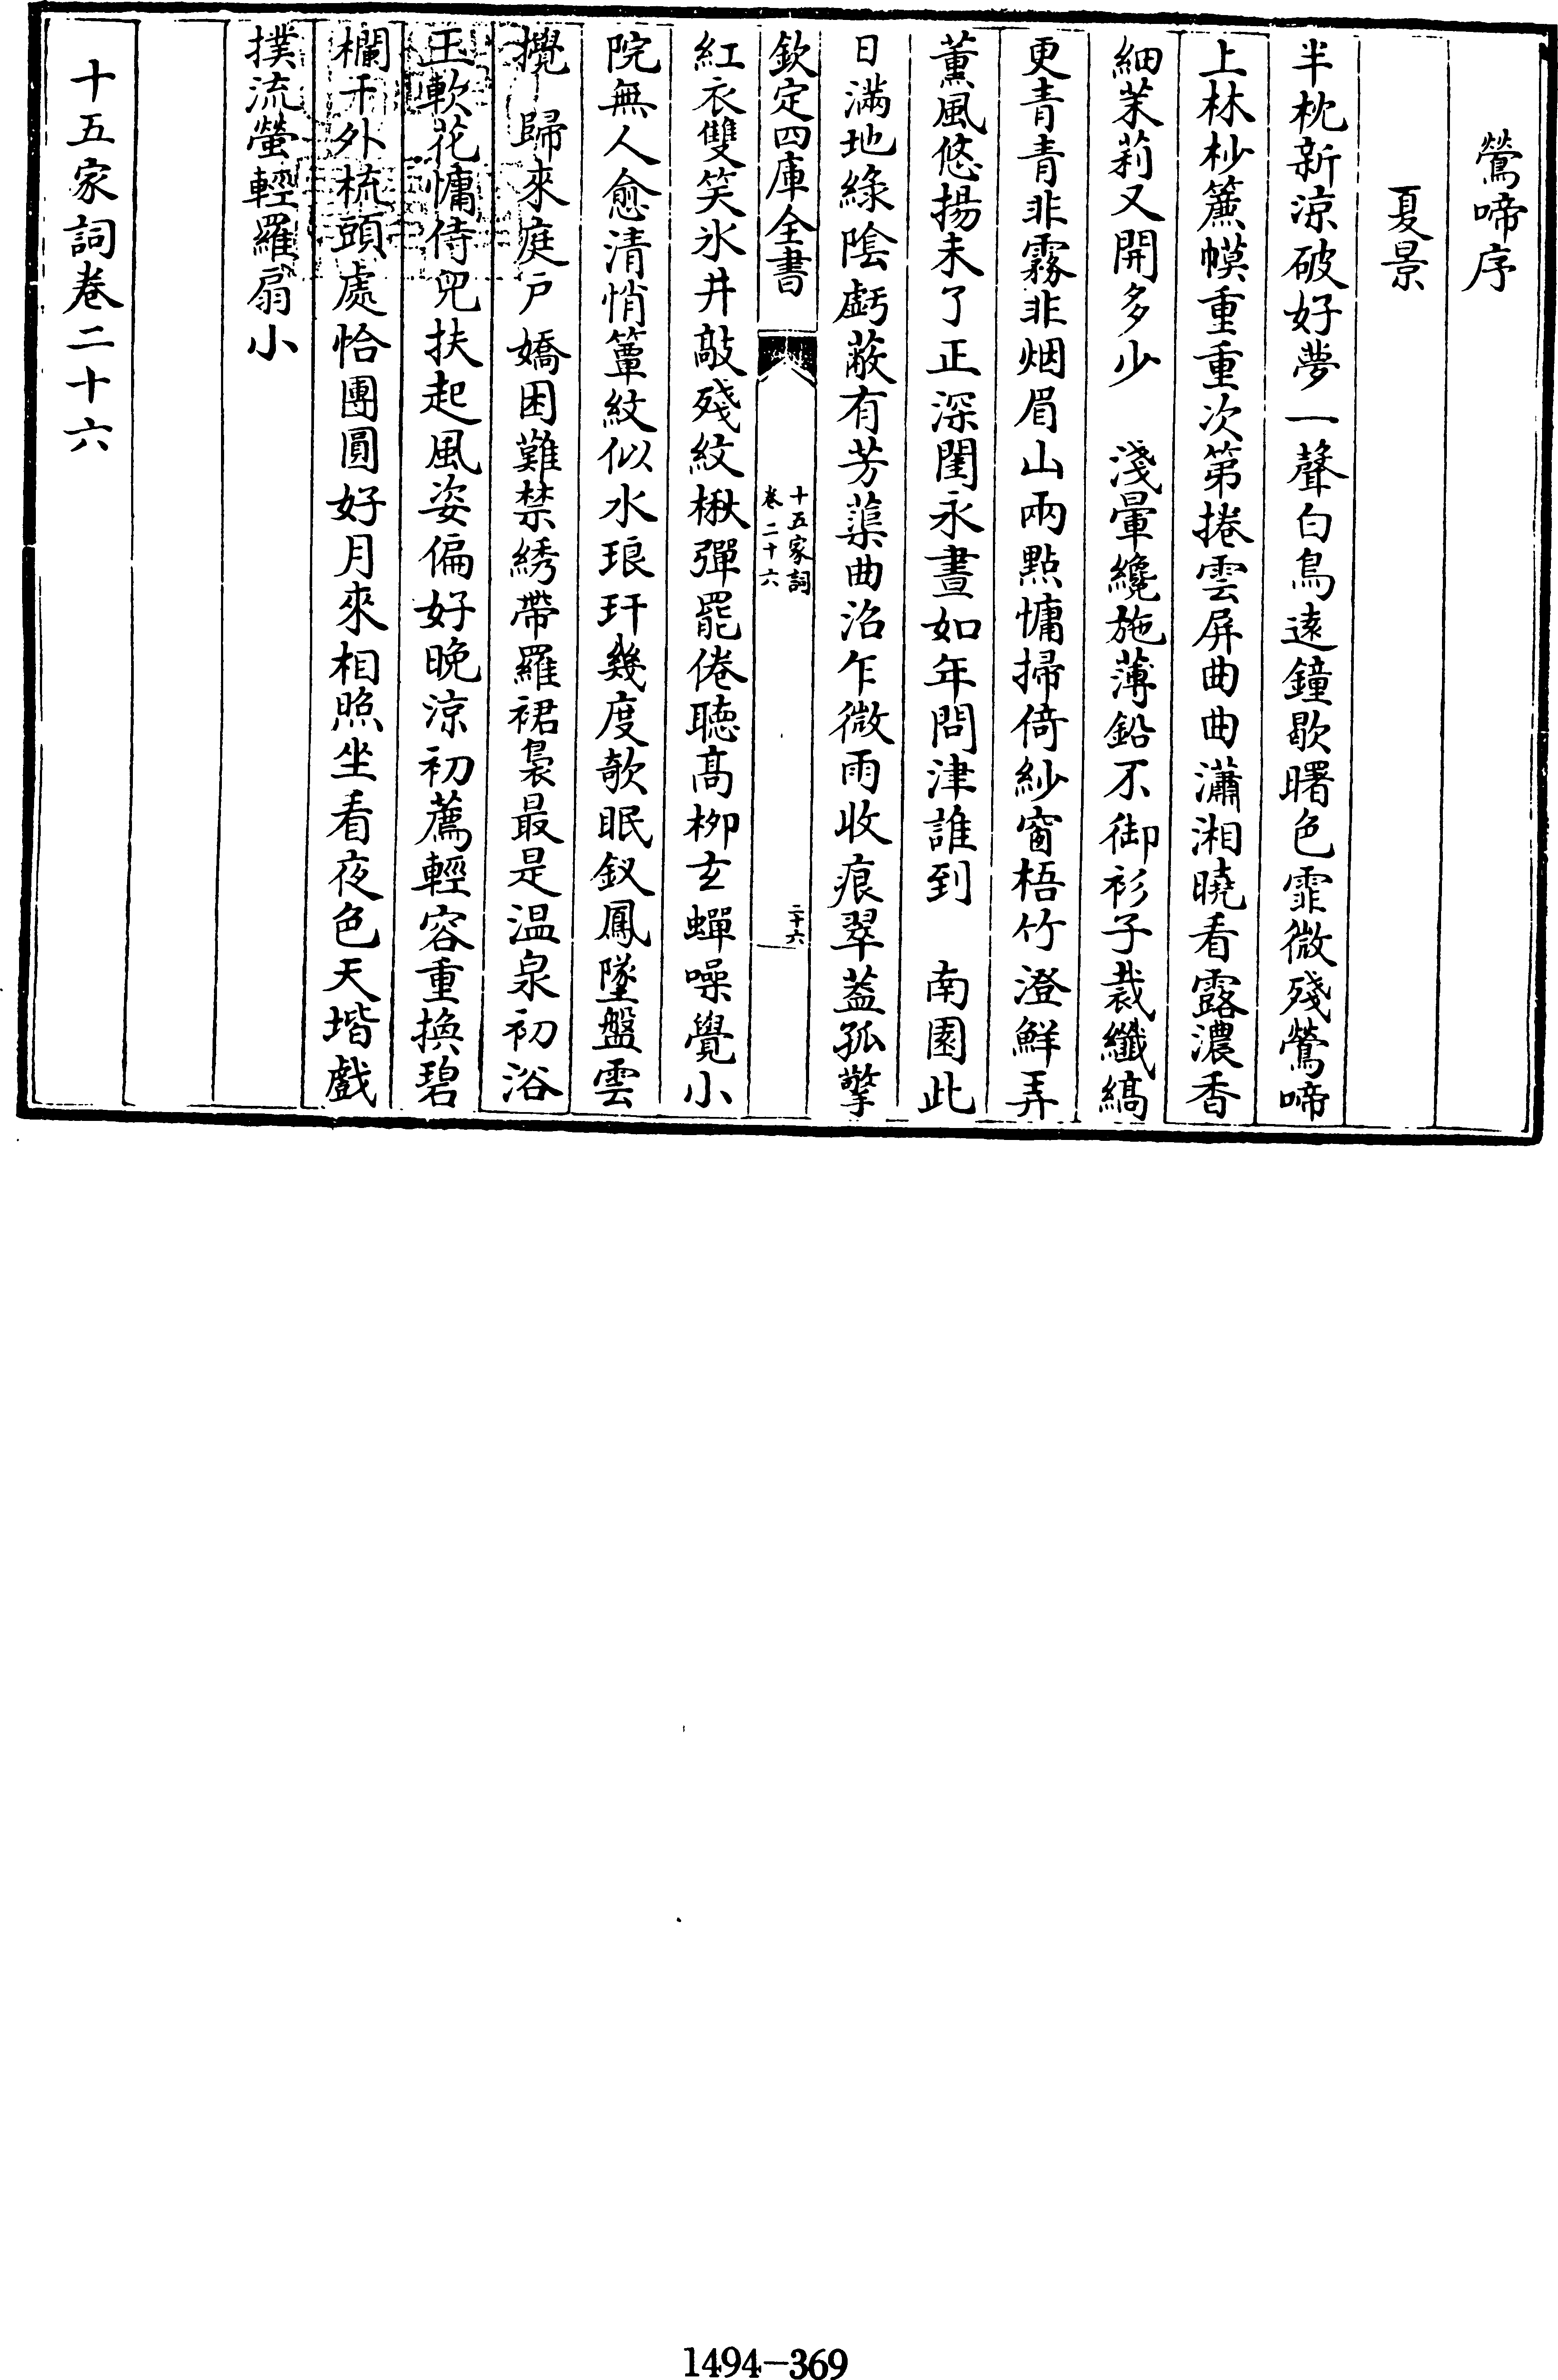 鶯啼序
夏景
半枕新涼破好夢一聲白鳥遠鐘歇曙色霏微殘鶯啼
上林杪簾幙重重次第捲雲屏曲曲瀟湘曉看露濃香
細茉莉又開多少　淺暈纔施薄鉛不御衫子裁纖縞
更青青非霧非烟眉山兩點慵掃倚紗窗梧竹澄鮮弄
薰風悠揚未了正深閨永晝如年問津誰到　南園此
日滿地綠陰虧蔽有芳蕖曲沼乍微雨收痕翠蓋孤擎
欽定四庫全書
十五家詞
卷二十六
二十六
紅衣雙笑氷井敲殘紋楸彈罷倦聽高柳玄蟬噪覺小
院無人愈清悄簟紋似水琅玕幾度欹眠釵鳳墜盤雲
攪　歸來庭戶嬌困難禁綉帶羅裙裊最是温泉初浴
玉軟花慵侍兒扶起風姿偏好晚涼初薦輕容重換碧
欄干外梳頭處恰團圓好月來相照坐看夜色天堦戲
撲流螢輕羅扇小
十五家詞卷二十六
1494-369